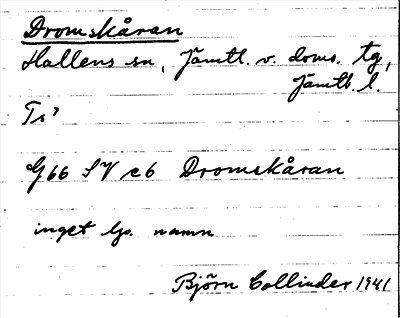 Dromskåran
Hallens sn, Jämtl. v. doms. tg,
Jämtl. l.
Ts?
G66 SV c6 Dromskåran
inget ljs. namn
Björn Collinder 1941